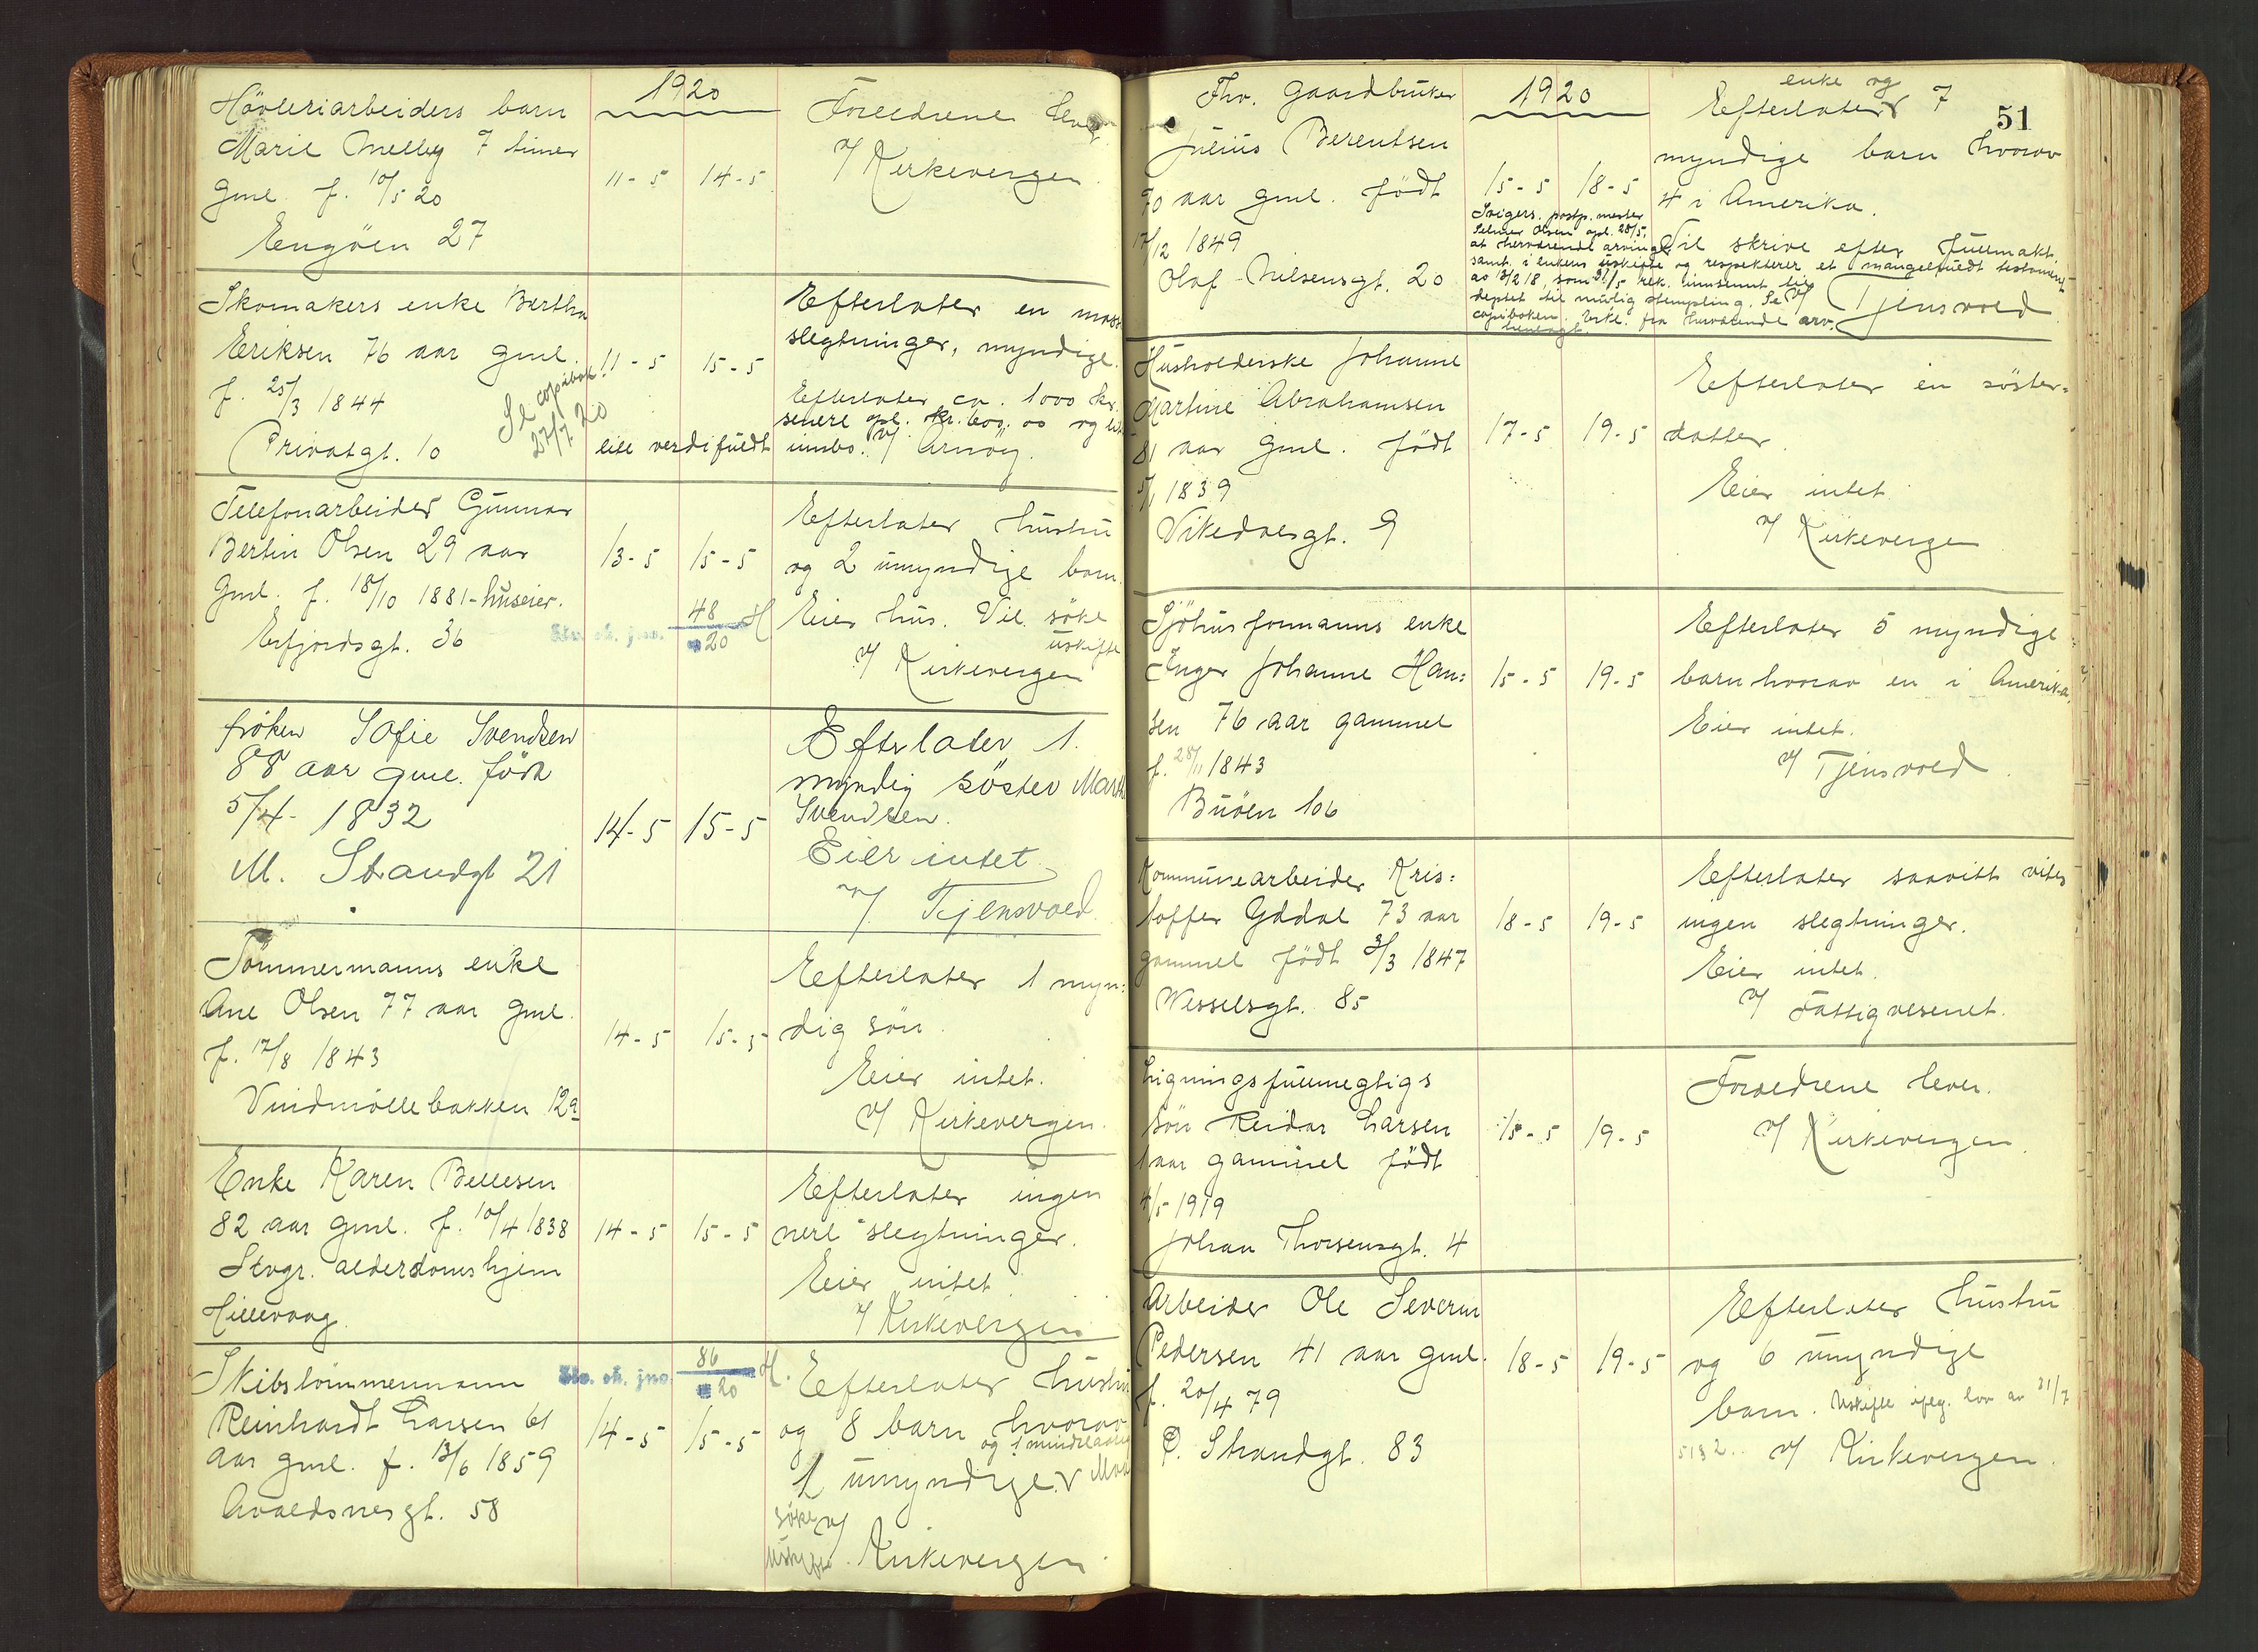 1920
Høvleriarbeiders barn
Marie Melby 7 timer
gml. f. 10/5 20
Engøen 27
11-5 14-5
Forældrene lever
v/ Kirkevergen
Skomakers enke Bertha
Eriksen 76 aar gml.
f. 25/3 1844
Privatgt. 10
Se copibok!
27/7 20
11-5 15-5
Efterlater en
slegtninger, myndige.
Efterlater ca. 1000 kr.
senere opl. kr. 600.00 og
lite verdifuldt innbo. v/ Arnøy.
Telefonarbeider Gunnar
Bertin Olsen 29 aar
gml. f. 18/10 1881 - huseier.
Erfjordsgt. 36
13-5 15-5
Stv. sk. jno. 48/20 H
Efterlater hustru
og 2 umyndige barn.
Eier hus. Vil søke
uskifte
v/ Kirkevergen
frøken Sofie Svendsen
88 aar gml. født
5/4- 1832
M. Strandgt 21
14-5 15-5
Efterlater 1.
myndig søster Martha
Svendsen.
Eier intet
v/ Tjensvold.
Tømmermanns enke
Ane Olsen 77 aar gml.
f. 17/8 1843
Vindmøllebakken 12a
14-5 15-5
Efterlater 1 myn:
dig søn.
Eier intet.
v/ Kirkevergen.
Enke Karen Bellesen
82 aar gml. f. 10/4 1838
Stvgr. alderdomshjem
Hillevaag.
14-5 15-5
Efterlater ingen
nere slegtninger.
Eier intet.
v/ Kirkevergen
Skibstømmermann
Reinhardt Larsen 61
aar gml. f. 13/6 1859
Avaldsnesgt. 58
Stv. sk. jno. 86/20 H.
14-5 15-5
Efterlater hustru
og 8 barn hvorav
og 1 mindreaarig
1 umyndige.
søke v/
uskifte. Kirkevergen.
51
1920
Fhv. gaardbruker
Julius Berentsen
70 aar gml. født
17/12 1849
Olaf Nilsensgt. 20
15-5 18-5
enke og
Efterlater 7
myndige barn hvorav
4 i Amerika.
Vil skrive efter fullmakt.
Svigers. postp. mester
Selmer Olsen opl. 28/5,
at herværende arvinger
samt. i enkens uskifte og respekterer et mangelfuldt testament
av 13/2 18, som 31/5 rek. innsendt til
deptet til mulig stempling. Se
copiboken. Erkl. fra herværende arv.
henlagt
v/ Tjensvold
Husholderske Johanne
Martine Abrahamsen
81 aar gml. født
5/1 1839
Vikedalsgt. 9
17-5 19-5
Efterlater en søster=
datter
Eier intet
v/ Kirkeverge
Sjøhusformanns enke
Inger Johanne Han:
sen 76 aar gammel
f. 28/11 1843
Buøen 106
15-5 19-5
Efterlater 5 myndige
barn hvorav en i Amerika.
Eier intet.
v/ Tjensvold.
Kommunearbeider Kris:
toffer Yddal 73 aar
gammel født 3/3 1847
Wesselsgt. 85
18-5 19-5
Efterlater saavitt vites
ingen slegtninger.
Eier intet.
v/ Fattigvesenet.
Ligningsfullmegtigs
søn Reidar Larsen
1 aar gammel født
4/5 1919
Johan Thorsensgt. 4
15-5 19-5
Forældrene lever.
v/ Kirkevergen.
Arbeider Ole Severin
Pedersen 41 aar gml.
f. 20/4 79
P. Strandgt. 83
18-5 19-5
Efterlater hustru
og 6 umyndige
barn. Uskifte ifølg. lov av 31/7
v/ Kirkevergen.